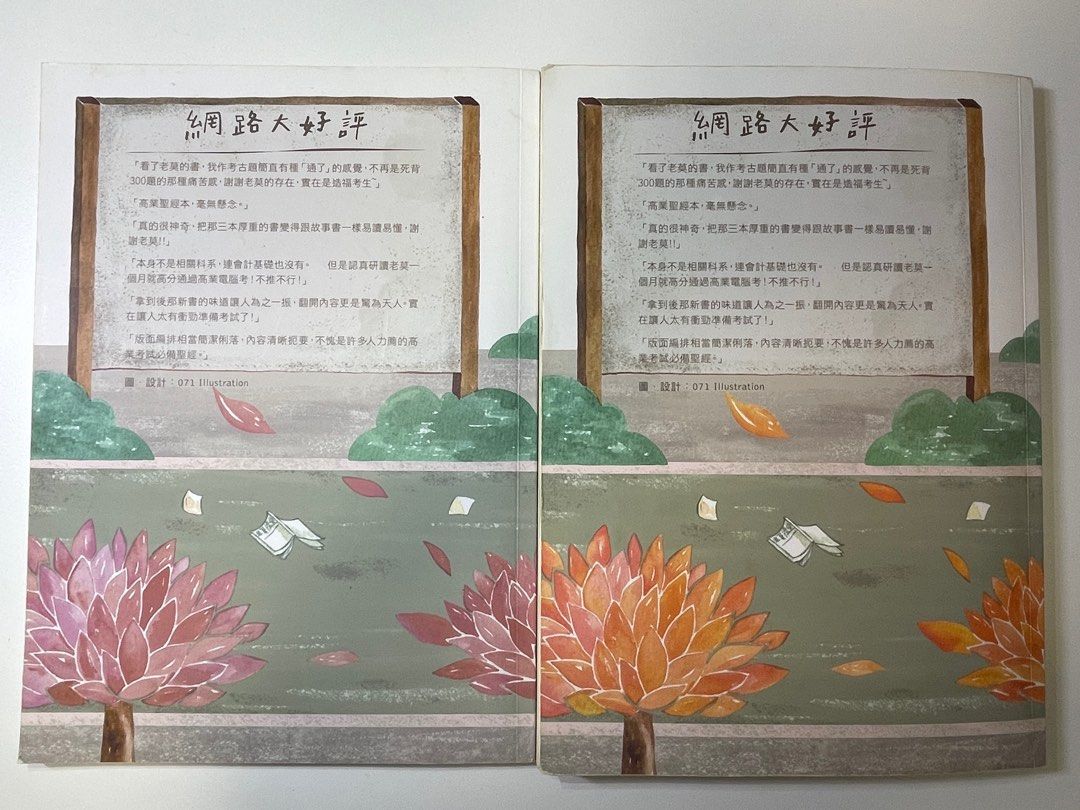 網路大好評
「看了老莫的書，我作考古題簡直有種「通了」的感覺，不再是死背
300題的那種痛苦感，謝謝老莫的存在，實在是造福考生~」
「高業聖經本，毫無懸念。」
「真的很神奇，把那三本厚重的書變得跟故事書一樣易讀易懂，謝
謝老莫!!」
「本身不是相關科系，連會計基礎也沒有。 但是認真研讀老莫一
個月就高分通過高業電腦考！不推不行！」
「拿到後那新書的味道讓人為之一振，翻開內容更是驚為天人。實
在讓人太有衝勁準備考試了！」
「版面編排相當簡潔俐落，內容清晰扼要，不愧是許多人力薦的高
業考試必備聖經。」
圖．設計：071 Illustration
網路大好評
「看了老莫的書，我作考古題簡直有種「通了」的感覺，不再是死背
300題的那種痛苦感，謝謝老莫的存在，實在是造福考生~」
「高業聖經本，毫無懸念。」
「真的很神奇，把那三本厚重的書變得跟故事書一樣易讀易懂，謝
謝老莫!!」
「本身不是相關科系，連會計基礎也沒有。 但是認真研讀老莫一
個月就高分通過高業電腦考！不推不行！」
「拿到後那新書的味道讓人為之一振，翻開內容更是驚為天人。實
在讓人太有衝勁準備考試了！」
「版面編排相當簡潔俐落，內容清晰扼要，不愧是許多人力薦的高
業考試必備聖經。」
圖．設計：071 Illustration